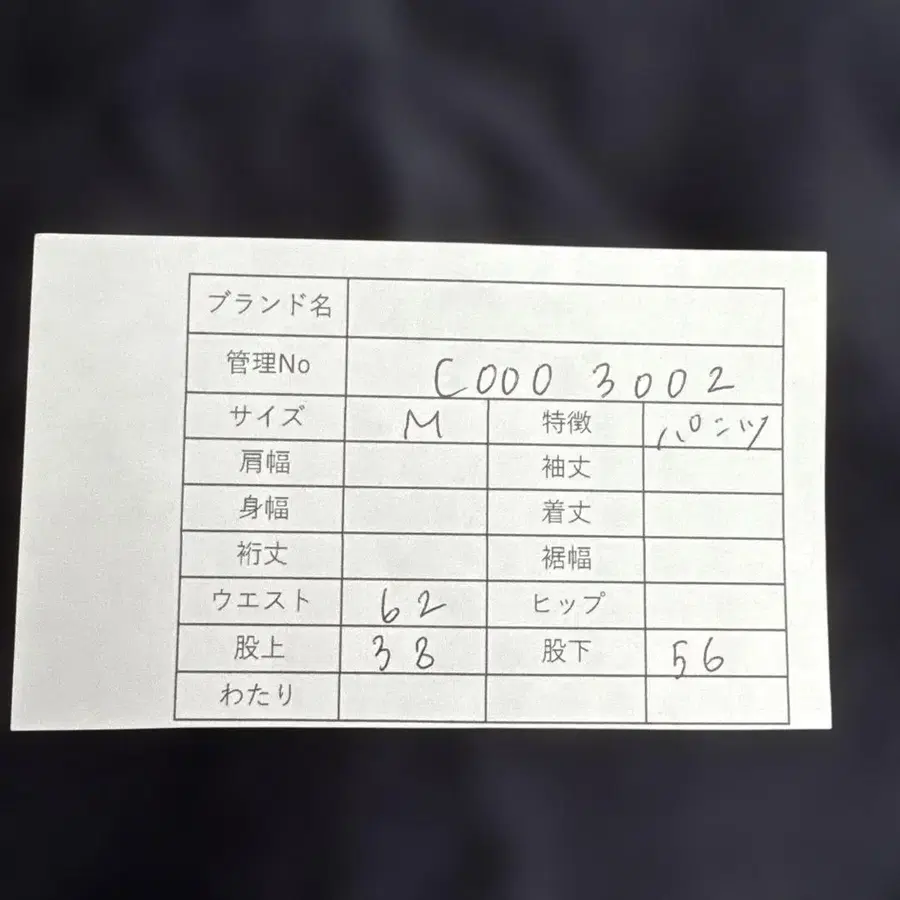 ブランド名
管理No C000 3002
サイズ M 特徴 パンツ
肩幅 袖丈
身幅 着丈
裄丈 裾幅
ウエスト 62 ヒップ
股上 38 股下 56
わたり